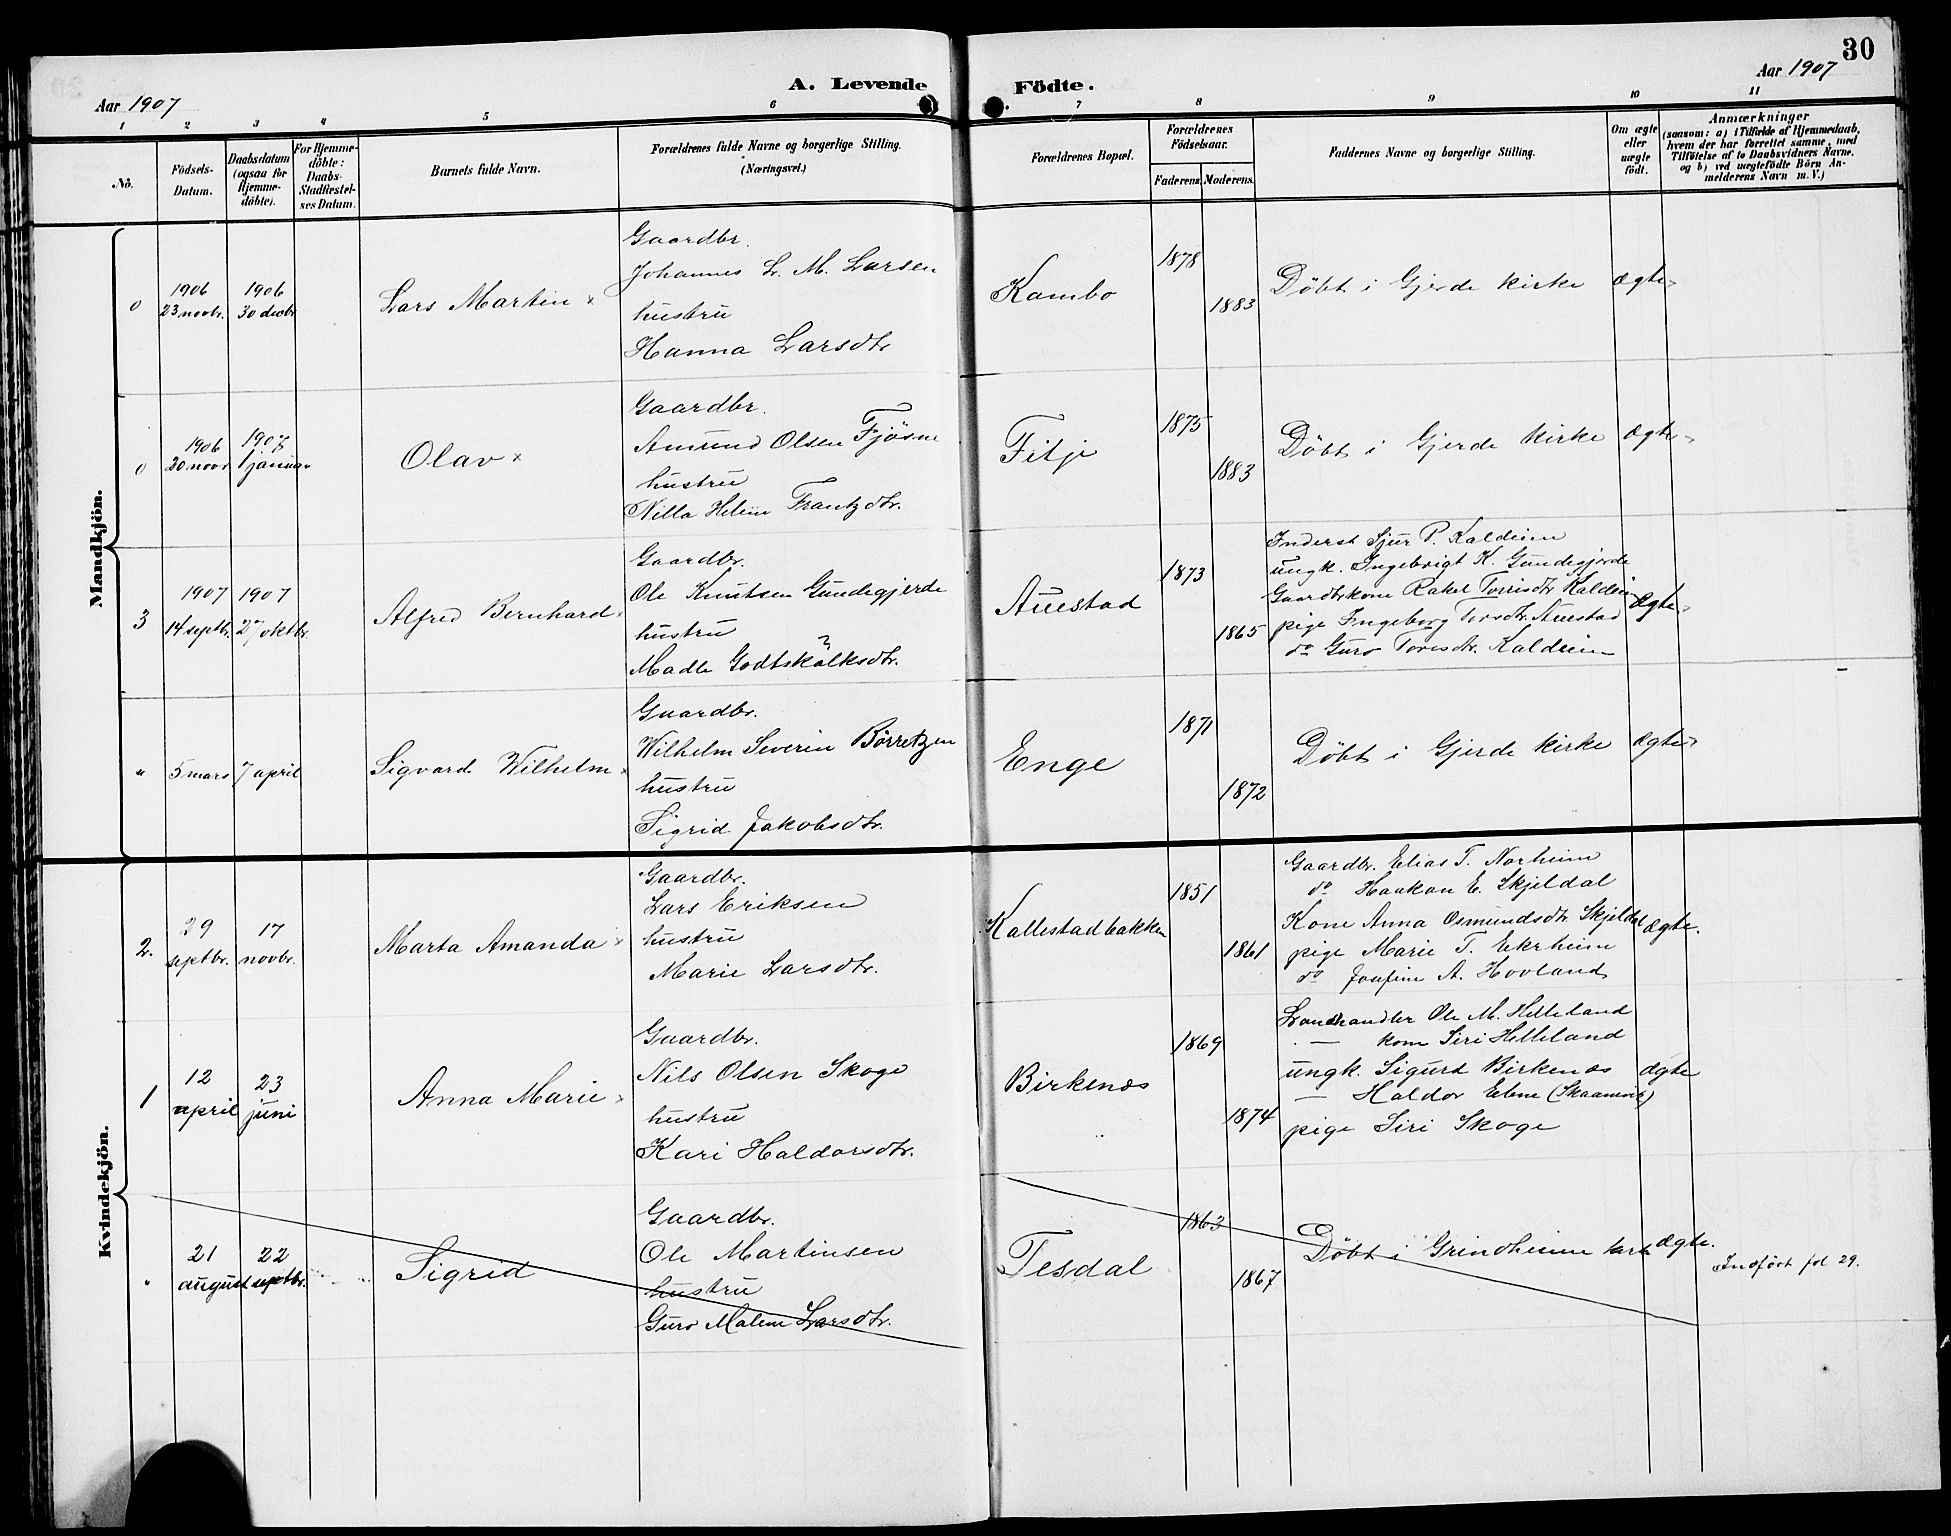 30
Aar 1907
A. Levende Födte.
Aar 1907
1 2 3 4 5 6 7 8 9 10 11
No.
Födsels-
Datum.
Daabsdatum
(ogsaa for
Hjemme-
döbte).
For Hjemme-
döbte:
Daabs-
Stadfæstel-
ses Datum.
Barnets fulde Navn.
Forældrenes fulde Navne og borgerlige Stilling.
(Næringsvei.)
Forældrenes Bopæl.
Forældrenes
Födselsaar.
Faderens.
Moderens.
Faddernes Navne og borgerlige Stilling.
Om ægte
eller
uægte
født.
Anmærkninger
(saasom: a) i Tilfælde af Hjemmedaab,
hvem der har forrettet samme, med
Tilföielse af to Daabsvidners Navne,
og b) ved uægtefödte Börn An-
melderens Navn m. V.)
Mandkjön.
0
1906
23 novbr.
1906
30 decbr
Lars Martin x
Gaardbr.
Johannes L. M. Larsen
hustru
Hanna Larsdtr
Kambo
1878
1883
Døbt i Gjerde kirke
ægte
0
1906
20 novr
1907
1 januar
Olav x
Gaardbr.
Amund Olsen Fjösne
hustru
Nilla Helene Frantzdtr.
Fitje
1875
1883
Døbt i Gjerde kirke
ægte
3
1907
14 septbr.
1907
27 oktbr.
Alfred Bernhard x
Gaardbr.
Ole Knutsen Gundegjerde
hustru
Madla Godtskalksdtr.
Auestad
1873
1865
Inderst Sjur P. Kaldeim
ungk. Ingebrigt K. Gundegjerde
Gaardbrkone Rakel Torrisdtr Kaldeim
pige Ingeborg Torsdtr. Auestad
do Guro Torisdtr. Kaldeim
ægte
"
5 mars
7 april
Sigvard Wilhelm x
Gaardbr.
Wilhelm Severin Børretzen
hustru
Sigrid Jakobsdtr.
Enge
1871
1872
Døbt i Gjerde kirke
ægte
Kvindekjön.
2.
29
septbr.
17
novbr.
Marta Amanda x
Gaardbr.
Lars Eriksen
hustru
Marie Larsdtr.
Kallestadbakken
1851
1861
Gaardbr. Elias T. Norheim
do Haakon E. Skjeldal
Kone Anna Osmundsdtr Skjeldal
pige Marie T. Ekrheim
do Josefine A. Hovland
ægte.
1
12
april
23
juni
Anna Marie x
Gaardbr.
Nils Olsen Skoge
hustru
Kari Haldorsdtr.
Birkenæs
1869
1874
Landhandler Ole M. Helleland
— kone Siri Helleland
ungk. Sigurd Birkenæs
— Haldor Ebne
pige Siri Skoge
ægte
"
21
august
22
septbr.
Sigrid
Gaardbr.
Ole Martinsen
hustru
Guro Malene Larsdtr.
Tesdal
1863
1867
Døbt i Grindheim kirke
ægte.
Indført fol 29.